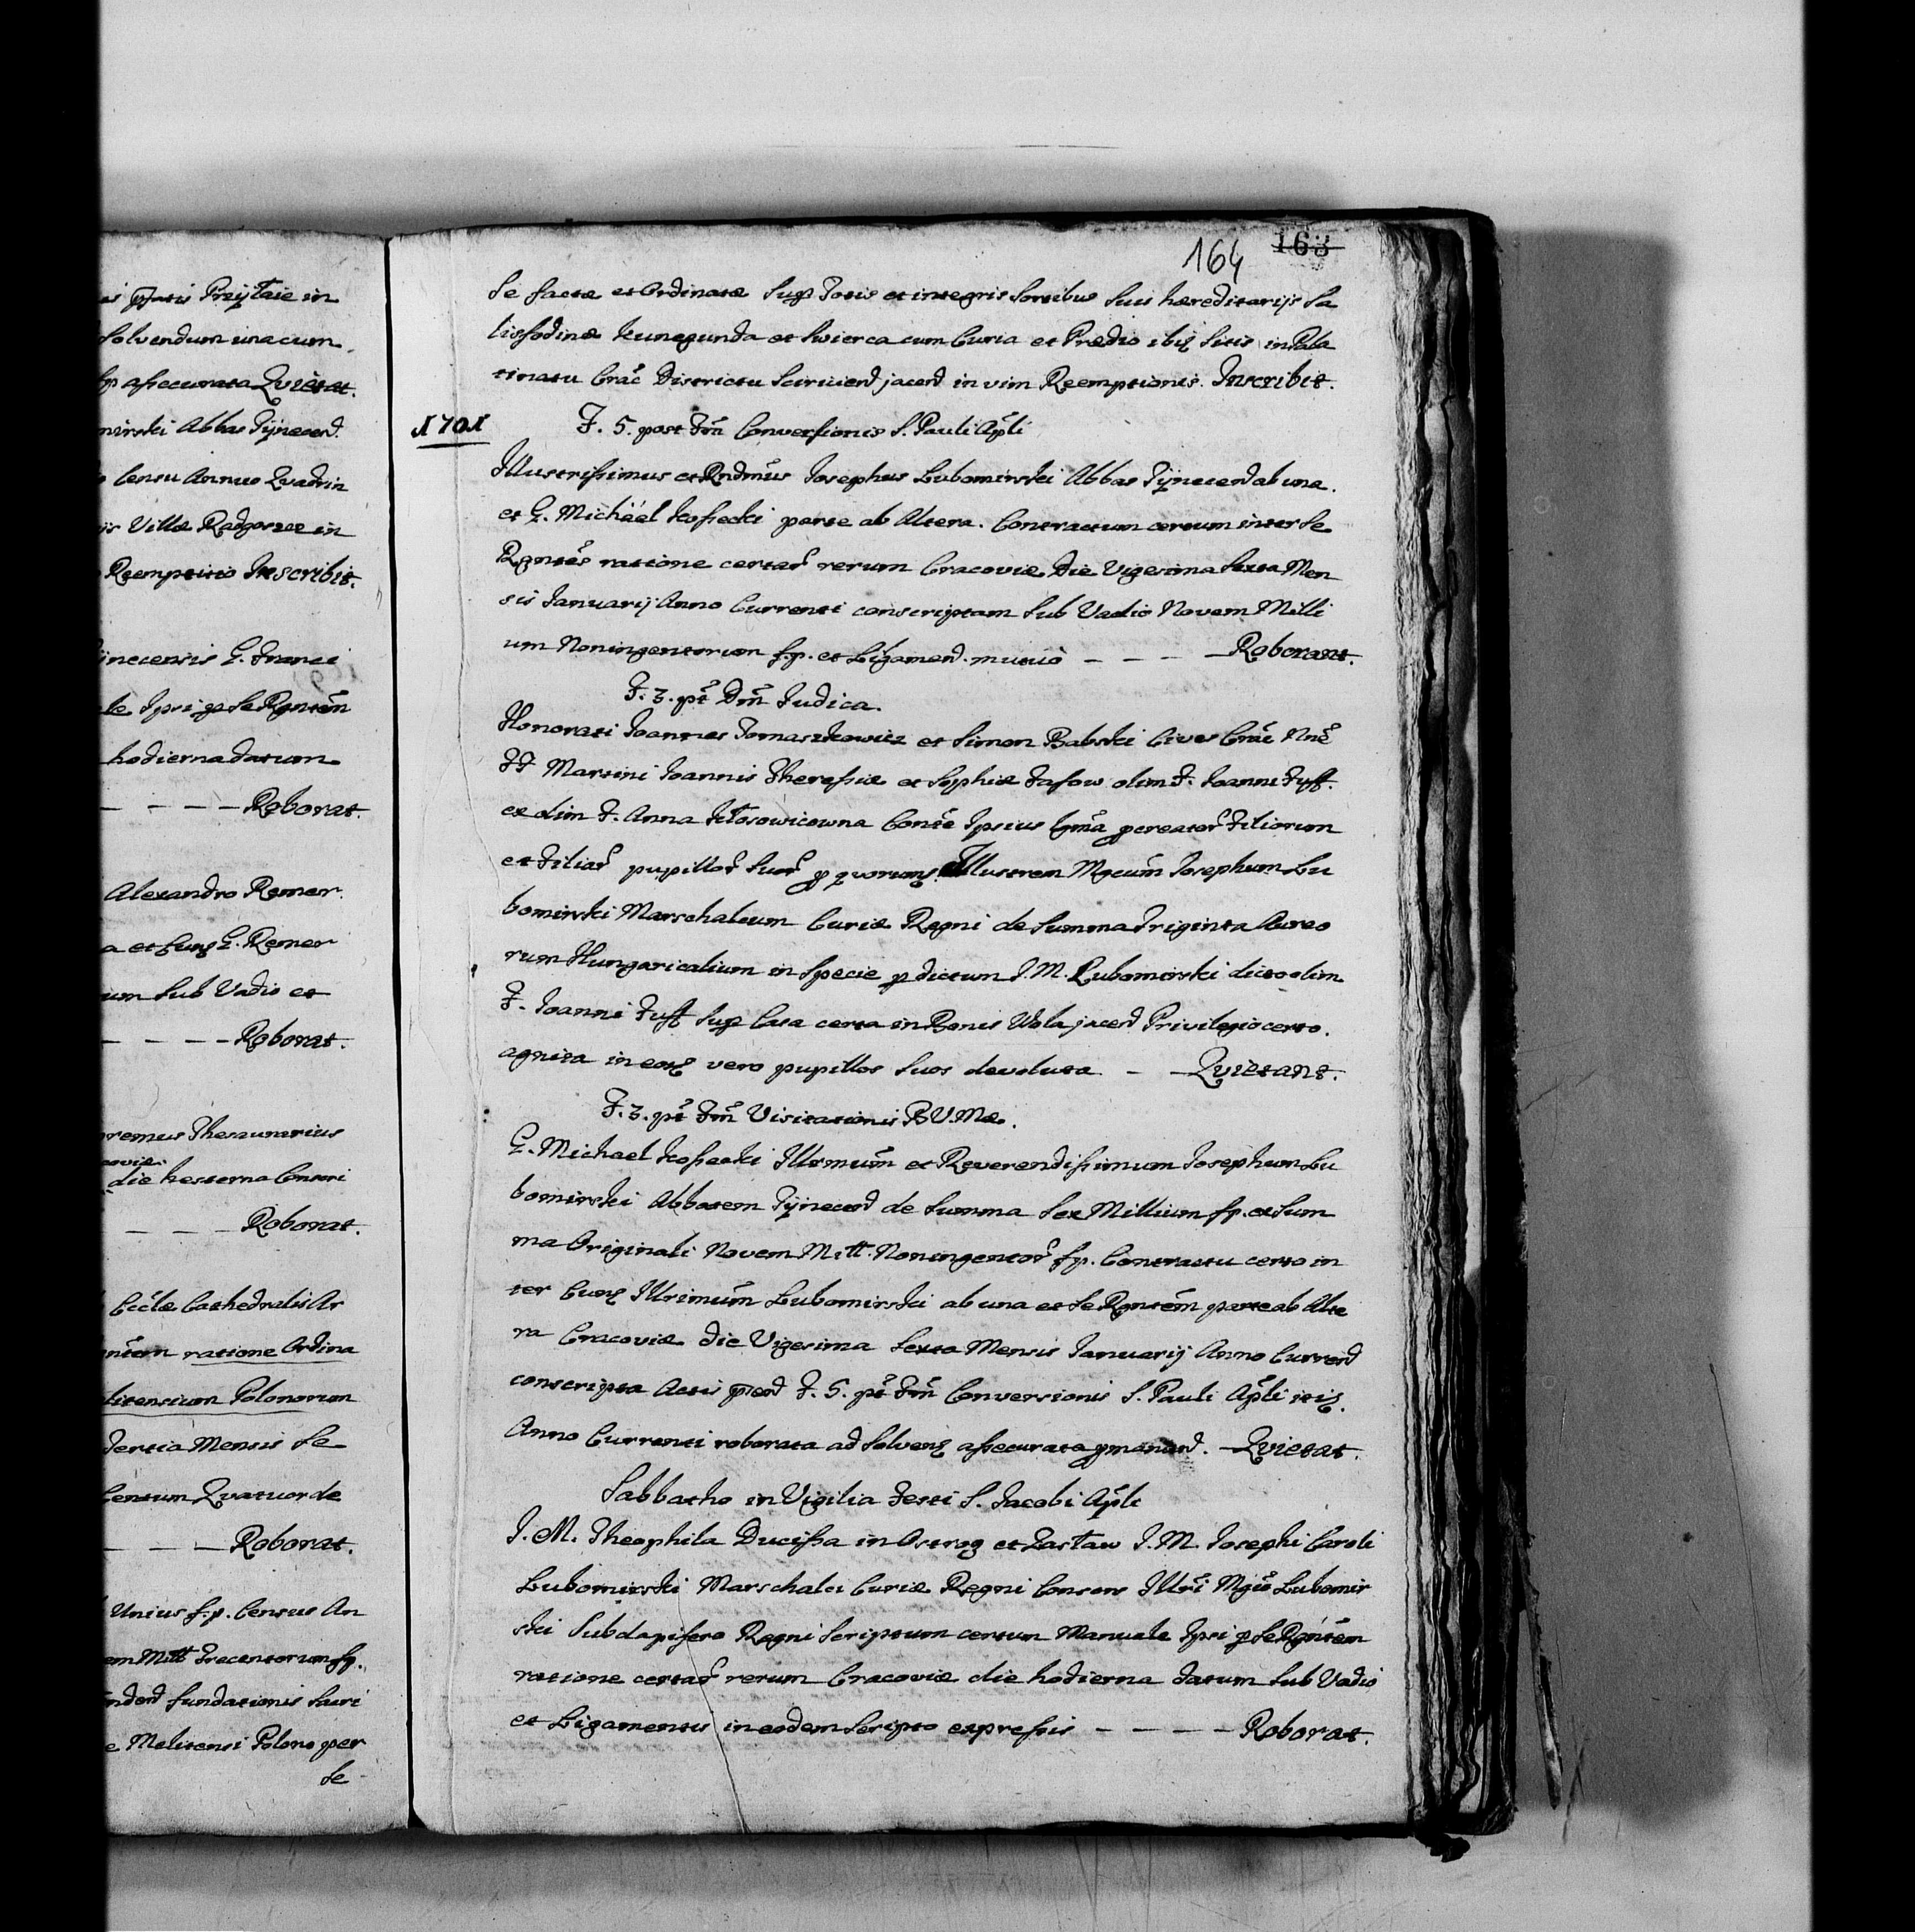 Prziÿtaie in
Solvendum una cum
assecurata Qvietat.
mirski Abbas Tÿnecens.
Censu Annuo Qvadrin
Villæ Radgoszcz in
Reemptio Inscribit.
inecensis G. Franci
le Ipsi p Se Rgntem
hodierna datum
– – – – Roborat.
Alexandro Remer
a et Eunq G. Remer
um Sub Vadio et
– – – – Roborat.
premus Thesaurarius
coviæ
die hesterna Conseri
– – – Roborat.
Eccłæ Cathedralis Ar
ntem ratione Ordina
litensium Polonorum
Tertia Mensis Se
Centum Qvatuor de
– – – Roborat.
Unius f.p. Census An
em Mill Trecentorum fp.
fundationis Sui
e Melitensi Polono per
Se
164 163
Se factæ et Ordinatæ Sup Totis et integris Sortibus Suis hæreditarijs Sa
lisfodinæ Kunegunda et Swierca cum Curia et Prædio ibiq Sitis in Pala
tinatu Crac Districtu Sciricien jacen in vim Reemptionis. Inscribit.
1701 F. 5. post Fm Conversionis S. Pauli Apli
Illustrissimus et Rndmus Josephus Lubomirski Abbas Tÿnecen ab una
et G. Michael Kossecki parte ab Altera. Contractum certum inter Se
Rgntes ratione certar rerum Cracoviæ Die Vigesima Sexta Men
sis Januarij Anno Currenti conscriptam Sub Vadio Novem Milli
um Noningentorum f.p. et Ligamend. mutuò – – – – Roborant.
F. 3. pt Dm Judica.
Honorati Joannes Tomaszkowicz et Simon Babski Cives Crac Nne
FF Martini Joannis Theressiæ et Sophiæ Fusow olim F. Joanne Fuss.
ex olim F. Anna Kłosowicowna Conse Ipsius lgma pcreator Filiorum
et Filiar pupillor Suor p quorumq Illustrem Mgcum Josephum Lu
bomirski Marschalcum Curiæ Regni de Summa Triginta Aureo
rum Hungaricalium in Specie p dictum I. M. Lubomirski dicto olim
F. Joanni Fuss Sup Casa certa in Bonis Wola jacen Privilegio certo
agnita in eosq vero pupillos Suos devoluta – Qvietant.
F. 3. pt Fm Visitationis B.V.Mæ.
G. Michael Kossecki Illsmum et Reverendissimum Josephum Lu
bomirski Abbatem Tÿnecen de Summa Sex Millium fp. ex Sum
ma Originali Novem Mill. Noningentor fp. Contractu certo in
ter Eunq Illsimum Lubomirski ab una et Se Rgntem parte ab Alte
ra Cracoviæ die Vigesima Sexta Mensis Januarij Anno Curren
conscripta Actis pnen F. 5. pt Fm Conversionis S. Pauli Apli itiq.
Anno Currenti roborata ad Solvenq assecurata pmanen. Qvietat.
Sabbatho in Vigilia Festi S. Jacobi Apli
I. M. Theophila Ducissa in Ostrog et Zasław I. M. Josephi Caroli
Lubomirski Marschalci Curiæ Regni Consors Illri Mgco Lubomir
ski Subdapifero Regni Scriptum certum Manuale Ipsi p Se Rgntem
ratione certar rerum Cracoviæ die hodierna datum Sub Vadio
et Ligamentis in eodem Scripto expressis – – – – Roborat.